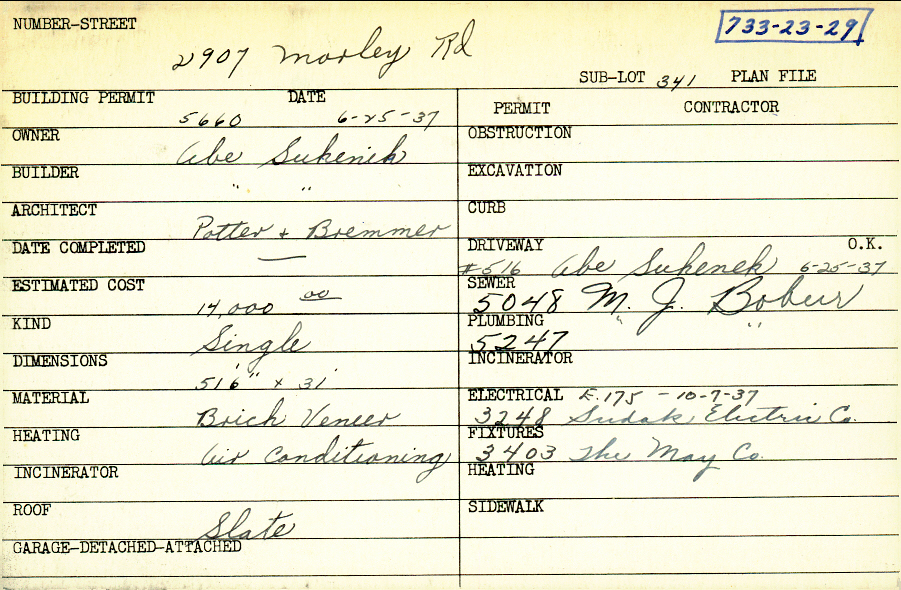 NUMBER-STREET
733-23-29
2907 Morley Rd
SUB-LOT 341 PLAN FILE
BUILDING PERMIT DATE
5660 6-25-37
OWNER
Abe Sukenik
BUILDER
" "
ARCHITECT
Potter + Bremmer
DATE COMPLETED
—
ESTIMATED COST
14,000 00
KIND
Single
DIMENSIONS
51'6" x 31'
MATERIAL
Brick Veneer
HEATING
Air Conditioning
INCINERATOR
ROOF
Slate
GARAGE-DETACHED-ATTACHED
PERMIT CONTRACTOR
OBSTRUCTION
EXCAVATION
CURB
DRIVEWAY O.K.
#516 Abe Sukenek 6-25-37
SEWER
5048 M. J.
PLUMBING
5247 " "
INCINERATOR
ELECTRICAL E.175 - 10-7-37
3248 Sudak Electric Co.
FIXTURES
3403 The May Co.
HEATING
SIDEWALK